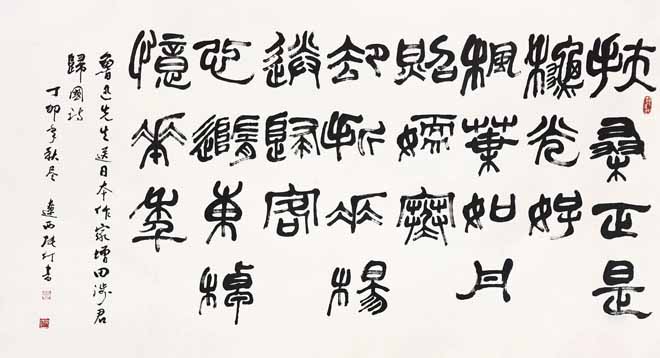 扶桑正是
龝光好
楓葉如丹
照嫩寒
却折垂楊
送歸客
心隨東棹
憶華年
魯迅先生送日本作家增田涉君
歸國詩
丁卯年秋盡 遼西 書